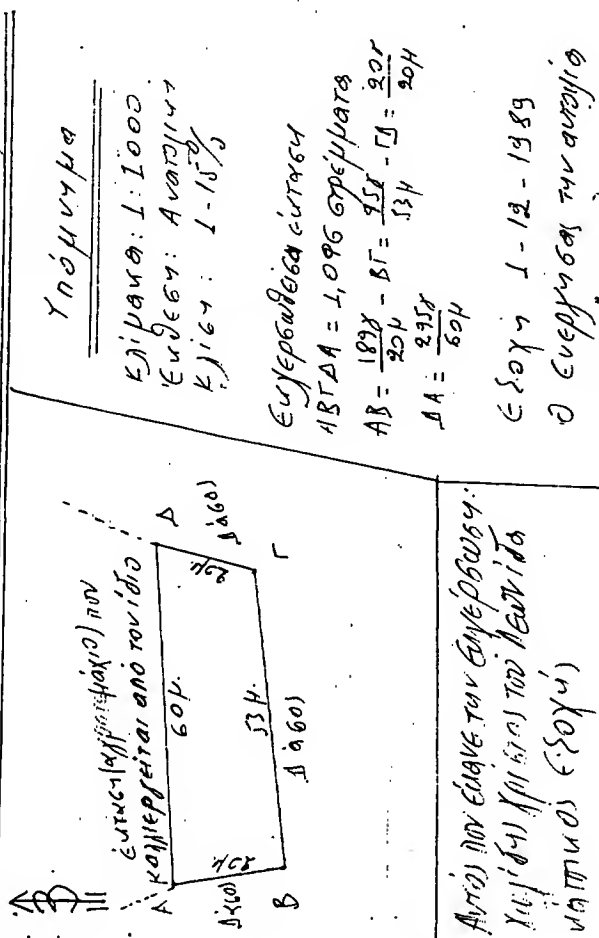 Υπόμνημα
Κλίμακα: 1:1000
Έκθεση: Ανατολική
Κλίση: 1-15%
Εκχερσωθείσα έκταση
ΑΒΓΔΑ = 1,096 στρέμματα
ΑΒ = 189γ/20μ - ΒΓ = 95γ/53μ - ΓΔ = 20γ/20μ
ΔΑ = 295γ/60μ
Εξοχή 1-12-1989
Ο ενεργήσας την αυτοψία
Β
έκταση (αγροτεμάχιο) που
καλλιεργείται από τον ίδιο
Α
Δ
60μ.
20μ
20μ
Δάσος
Δάσος
53μ.
Β
Γ
Δάσος
Αυτός που έκανε την εκχέρσωση:
Χρήστος του Λεωνίδα
κάτοικος Εξοχή